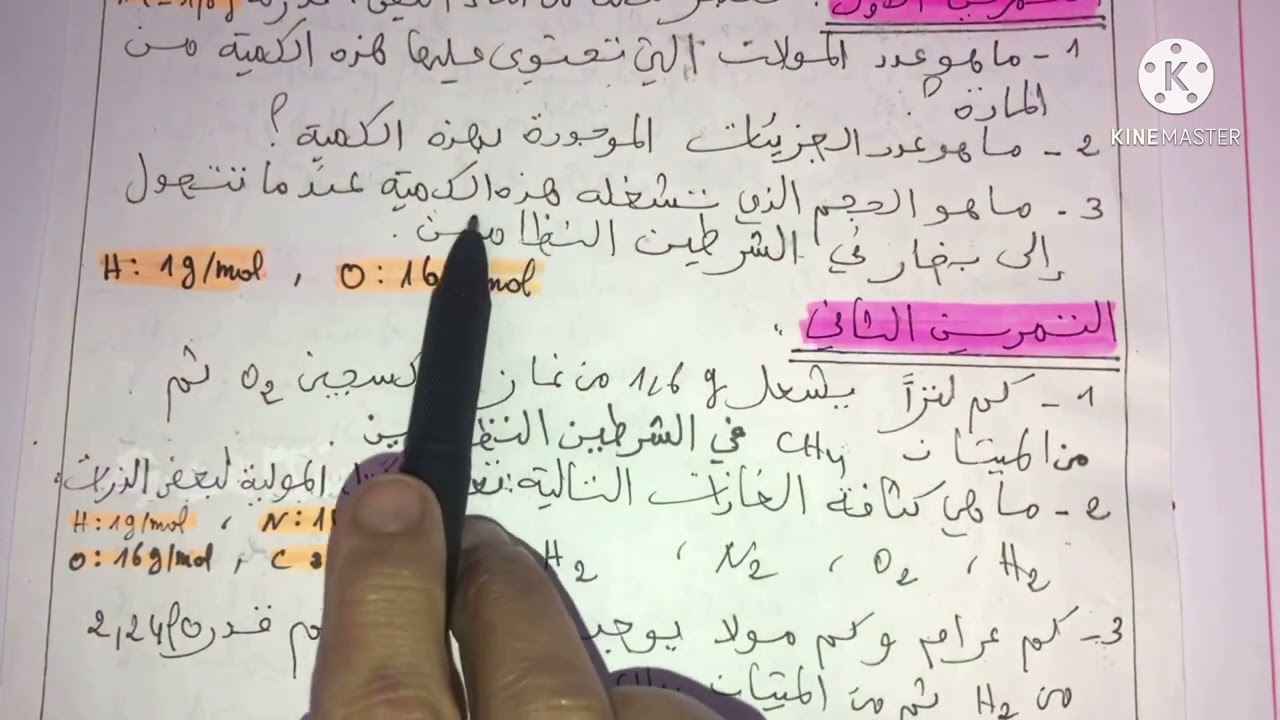 التمرين الأول
1- ما هو عدد المولات التي تحتوي عليها هذه الكمية من
المادة؟
2- ما هو عدد الجزيئات الموجودة بهذه الكمية؟
3- ما هو الحجم الذي تشغله هذه الكمية عندما تتحول
إلى بخار في الشرطين النظاميين.
H: 1g/mol , O: 16 mol
التمرين الثاني:
1- كم لترًا يشغل 1,6 g من غاز O2 ثم
من الميتان CH4 في الشرطين النظاميين.
2- ماهي كثافة الغازات التالية: المولية لبعض الذرات:
H: 1g/mol , N:
O: 16g/mol , C
H2 , O2 , N2 , H2
3- كم غرام وكم مولا يوجد قدره 2,24l
من H2 ثم من الميتان
K
KINEMASTER